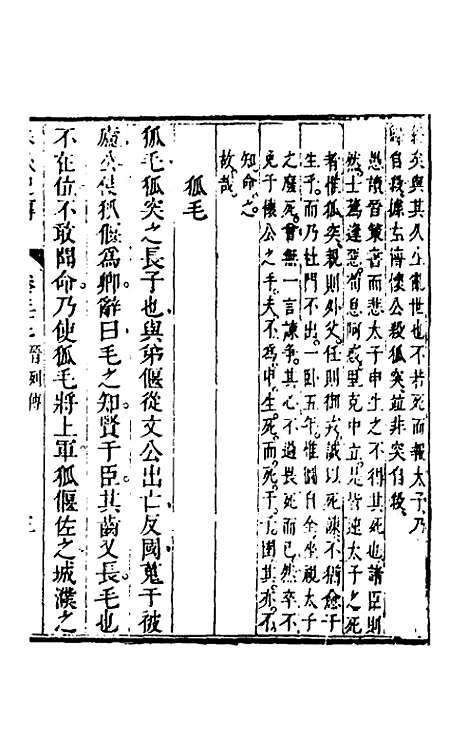 與其久生亂世也不若死而報太子乃
自殺據左傳懷公殺狐突並非突自殺
愚讀晉策書而悲太子申生之不得其死也諸臣則
然士蒍逢惡荀息阿惑里克中立是皆速太子之死
者惟狐突親則外父任則御戎誠以死諫不猶愈于
生乎而乃杜門不出一卧五年惟圖自全坐視太子
之廢死曾無一言諫爭其心不過畏死而已然卒不
免于懷公之手夫不為申生死而死于子圉其亦不
知命之
故哉
狐毛
狐毛狐突之長子也與弟偃從文公出亡反國蒐于被
廬公使狐偃為卿辭曰毛之知賢于臣其齒又長毛也
不在位不敢聞命乃使狐毛將上軍狐偃佐之城濮之
晉列傳